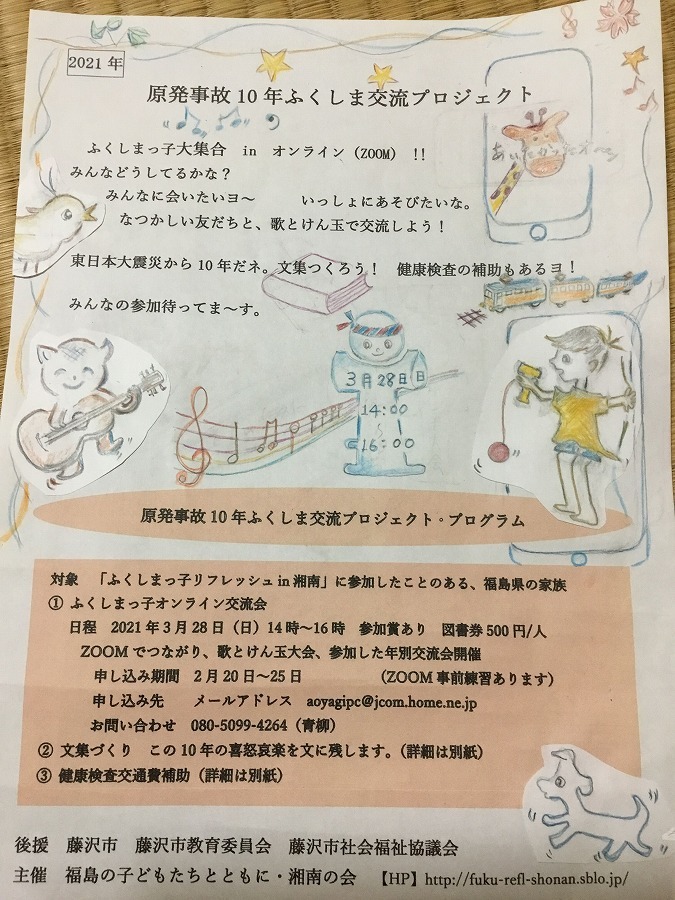 2021 年
原発事故10年ふくしま交流プロジェクト
ふくしまっ子大集合 in オンライン（ZOOM）!!
みんなどうしてるかな？
みんなに会いたいヨ～ いっしょにあそびたいな。
なつかしい友だちと、歌とけん玉で交流しよう！
東日本大震災から10年だネ。文集つくろう！ 健康検査の補助もあるヨ！
みんなの参加待ってま～す。
3月28日日
14:00
～
16:00
原発事故10年ふくしま交流プロジェクト・プログラム
対象 「ふくしまっ子リフレッシュin湘南」に参加したことのある、福島県の家族
① ふくしまっ子オンライン交流会
日程 2021年3月28日（日）14時～16時 参加賞あり 図書券500円/人
ZOOMでつながり、歌とけん玉大会、参加した年別交流会開催
申し込み期間 2月20日～25日 （ZOOM事前練習あります）
申し込み先 メールアドレス aoyagipc@jcom.home.ne.jp
お問い合わせ 080-5099-4264（青柳）
② 文集づくり この10年の喜怒哀楽を文に残します。（詳細は別紙）
③ 健康検査交通費補助（詳細は別紙）
後援 藤沢市 藤沢市教育委員会 藤沢市社会福祉協議会
主催 福島の子どもたちとともに・湘南の会 【HP】http://fuku-refl-shonan.sblo.jp/